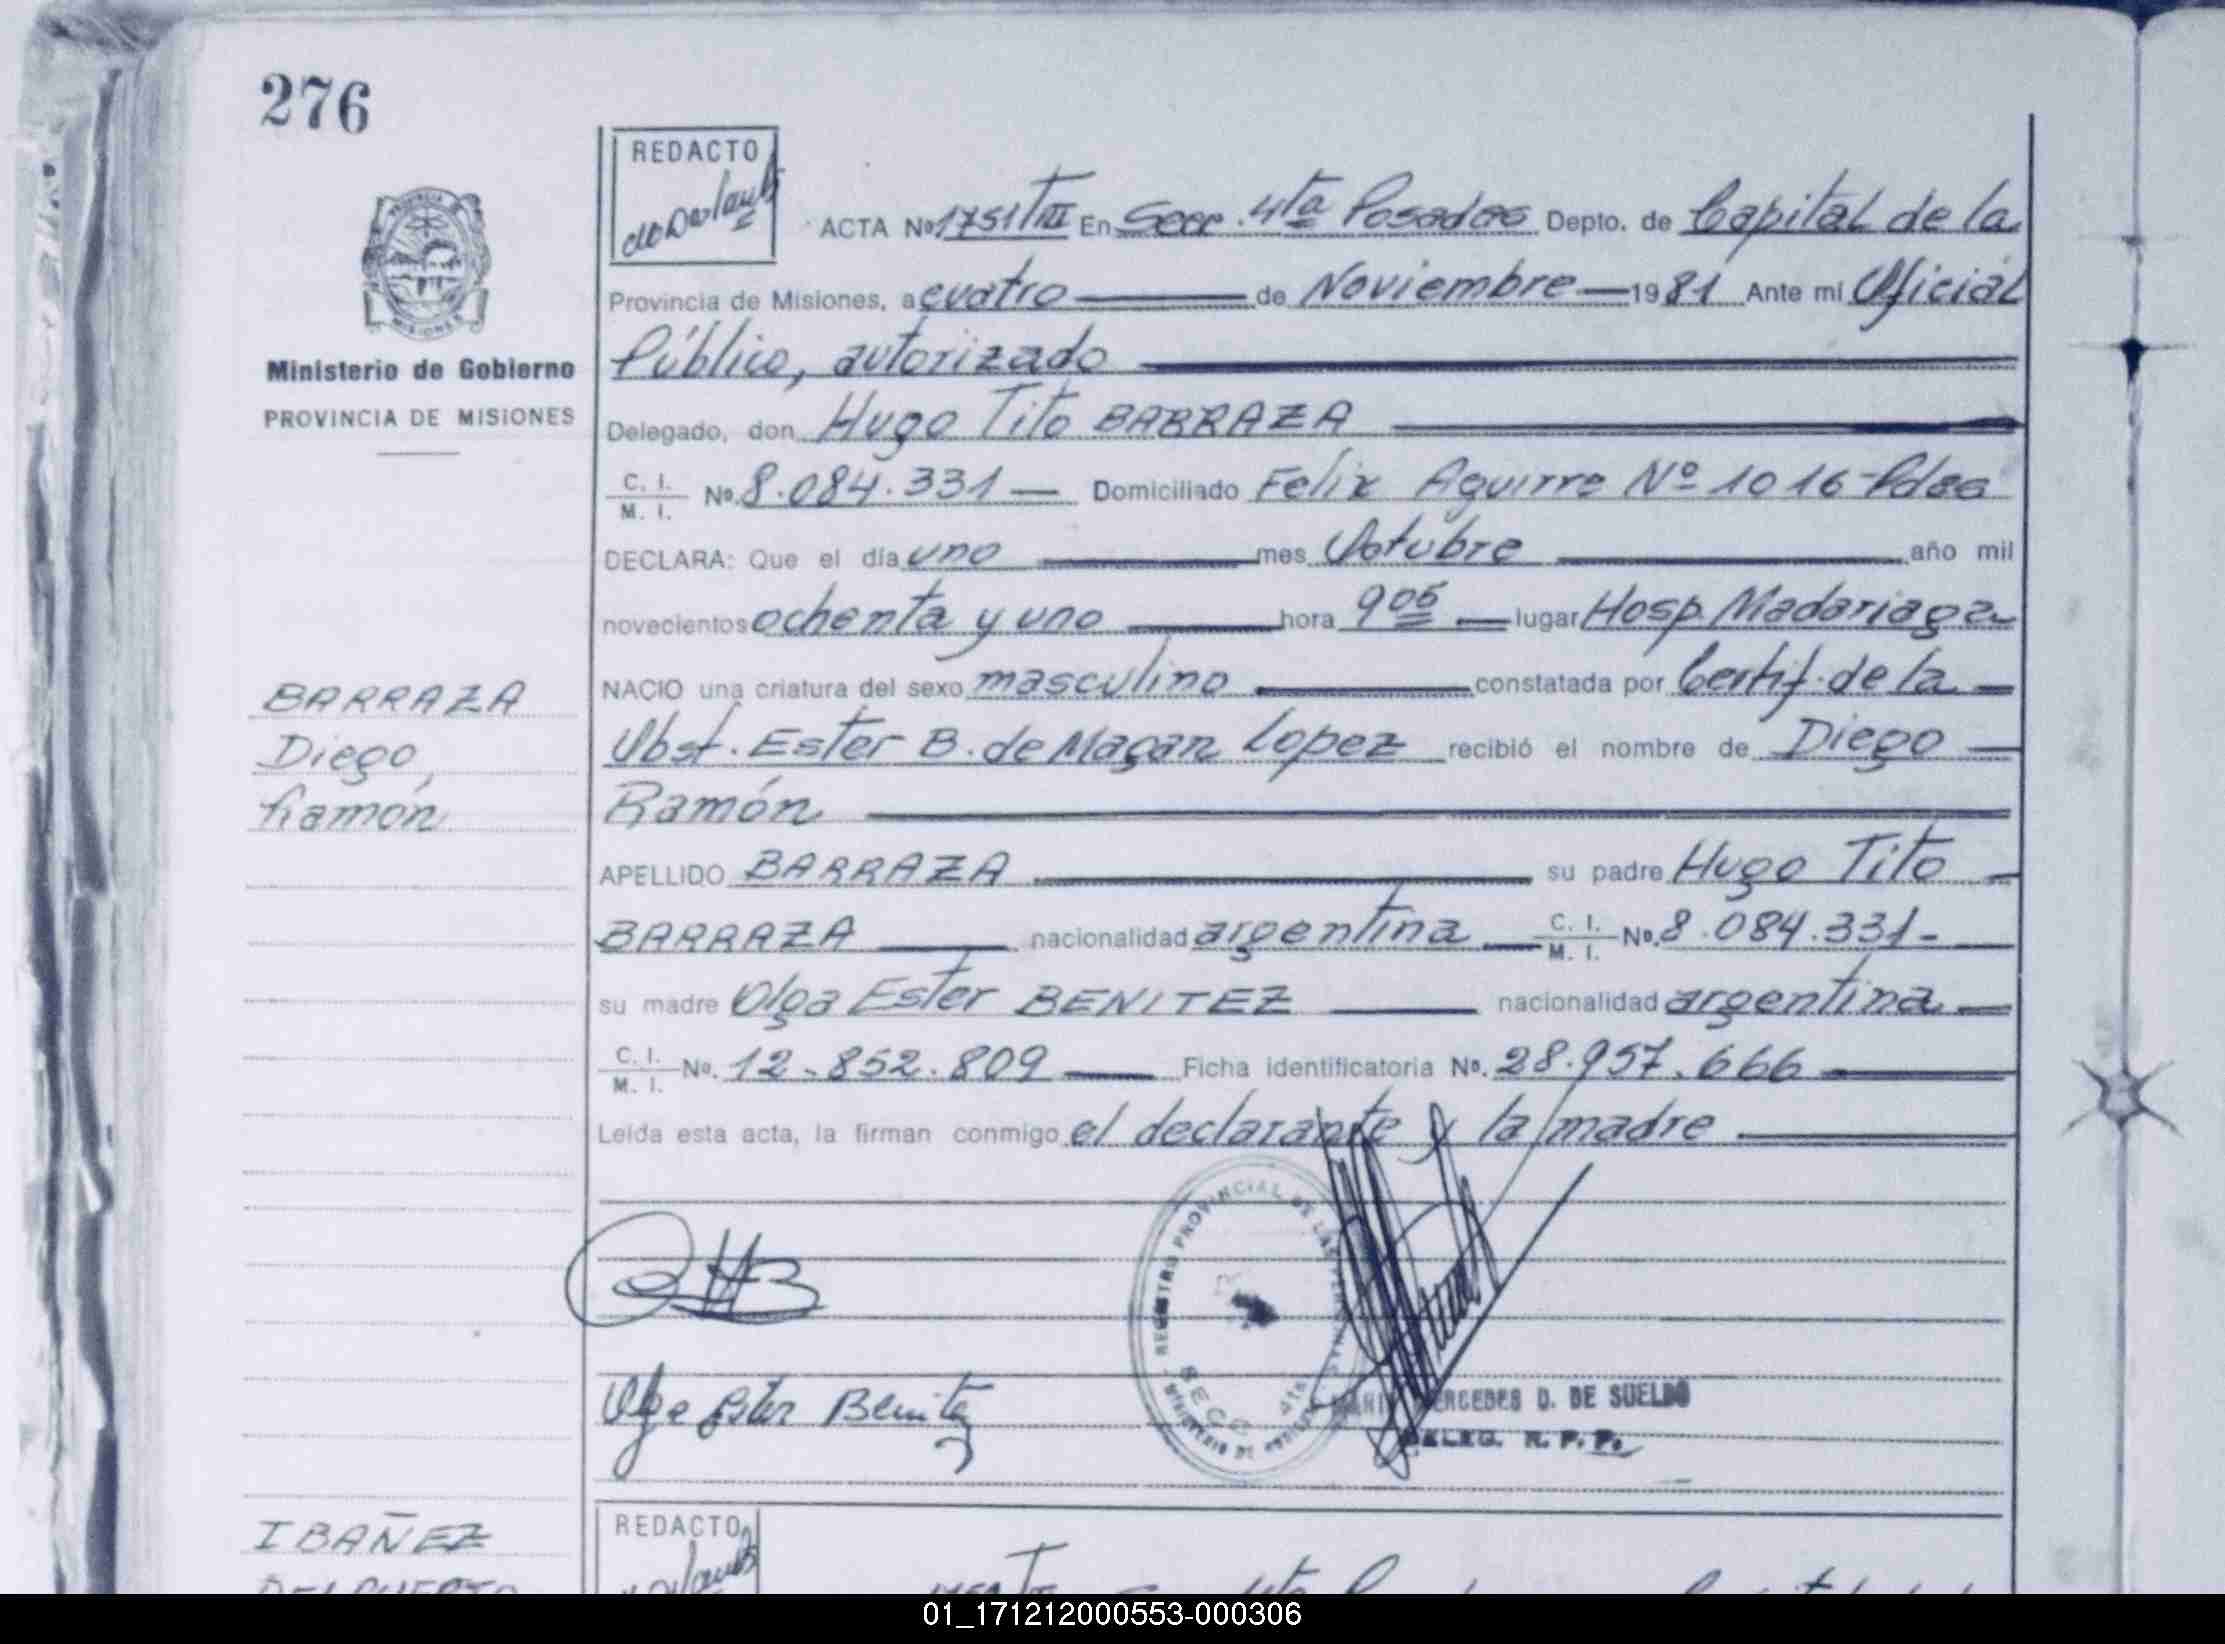 276
REDACTO
ACTA No 1751 T III En Secc. 4ta Posadas Depto. de Capital de la
Provincia de Misiones, a cuatro de Noviembre 1981 Ante mi Oficial
Público, autorizado
Ministerio de Gobierno
PROVINCIA DE MISIONES
Delegado, don Hugo Tito BARRAZA
C. I.
M. I. No. 8.084.331 — Domiciliado Felix Aguirre Nº 1016 - Pdas
DECLARA: Que el día uno mes Octubre año mil
novecientos ochenta y uno hora 9 05 lugar Hosp. Madariaga
NACIO una criatura del sexo masculino constatada por Certif. de la
BARRAZA
Diego,
Ramón
Obst. Ester B. de Magan Lopez recibió el nombre de Diego
Ramón
APELLIDO BARRAZA su padre Hugo Tito
BARRAZA nacionalidad argentina C. I.
M. I. No. 8.084.331-
su madre Olga Ester BENITEZ nacionalidad argentina
C. I.
M. I. No. 12.852.809 Ficha identificatoria No. 28.957.666
Leída esta acta, la firman conmigo el declarante y la madre
REGISTRO PROVINCIAL DE LAS PERSONAS
SECC 4ta
MINISTERIO DE GOBIERNO
Olga Ester Benitez
MARIA MERCEDES D. DE SUELDO
DELEG. R. P. P.
IBAÑEZ
DEL PUERTO
REDACTO
01_171212000553-000306